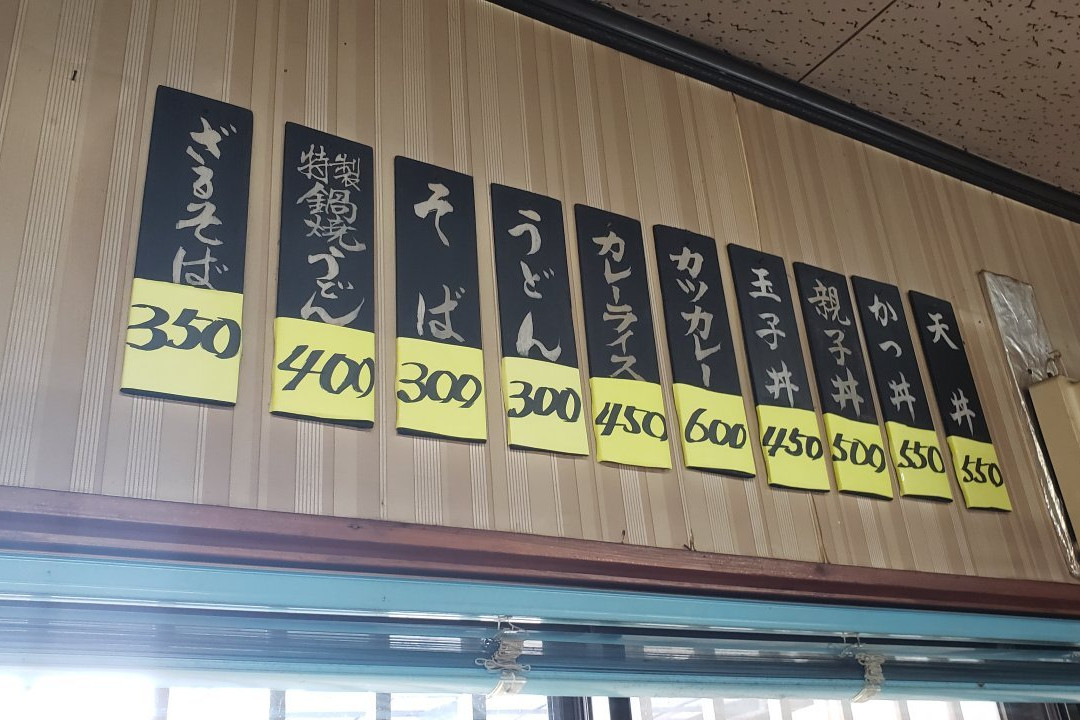 天丼
550
かつ丼
550
親子丼
500
玉子丼
450
カツカレー
600
カレーライス
450
うどん
300
そば
300
特製
鍋焼うどん
400
ざるそば
350